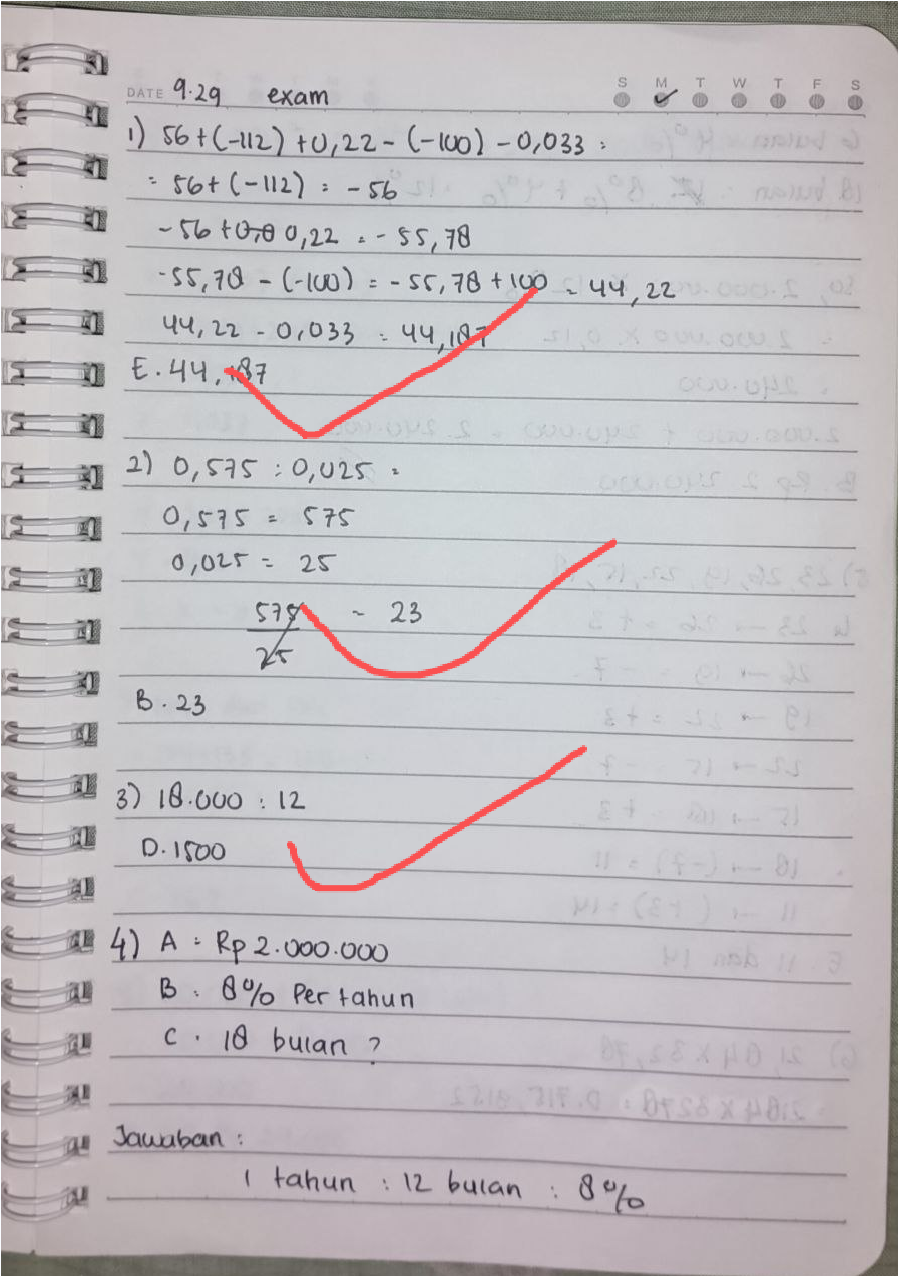 DATE 9.29 exam S M T W T F S
1) 56+(-112)+0,22-(-100)-0,033=
= 56+(-112) = -56
-56+0,0 0,22 = -55,78
-55,78-(-100) = -55,78+100 = 44,22
44,22-0,033 = 44,187
E. 44,187
2) 0,575 : 0,025 =
0,575 = 575
0,025 = 25
575 = 23
25
B. 23
3) 18.000 : 12
D. 1500
4) A = Rp 2.000.000
B. 8% Per tahun
C. 18 bulan ?
Jawaban :
1 tahun : 12 bulan : 8%